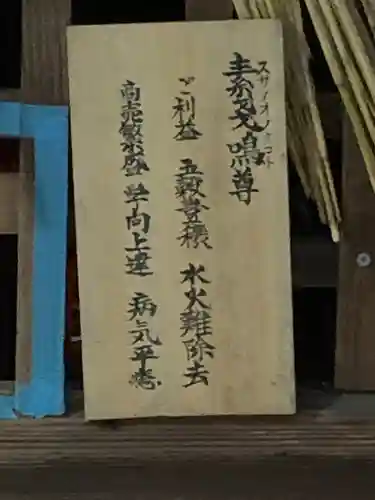 素戔鳴尊
スサノオノミコト
ご利益 五穀豊穣 水火難除去
商売繁盛 学向上達 病気平癒